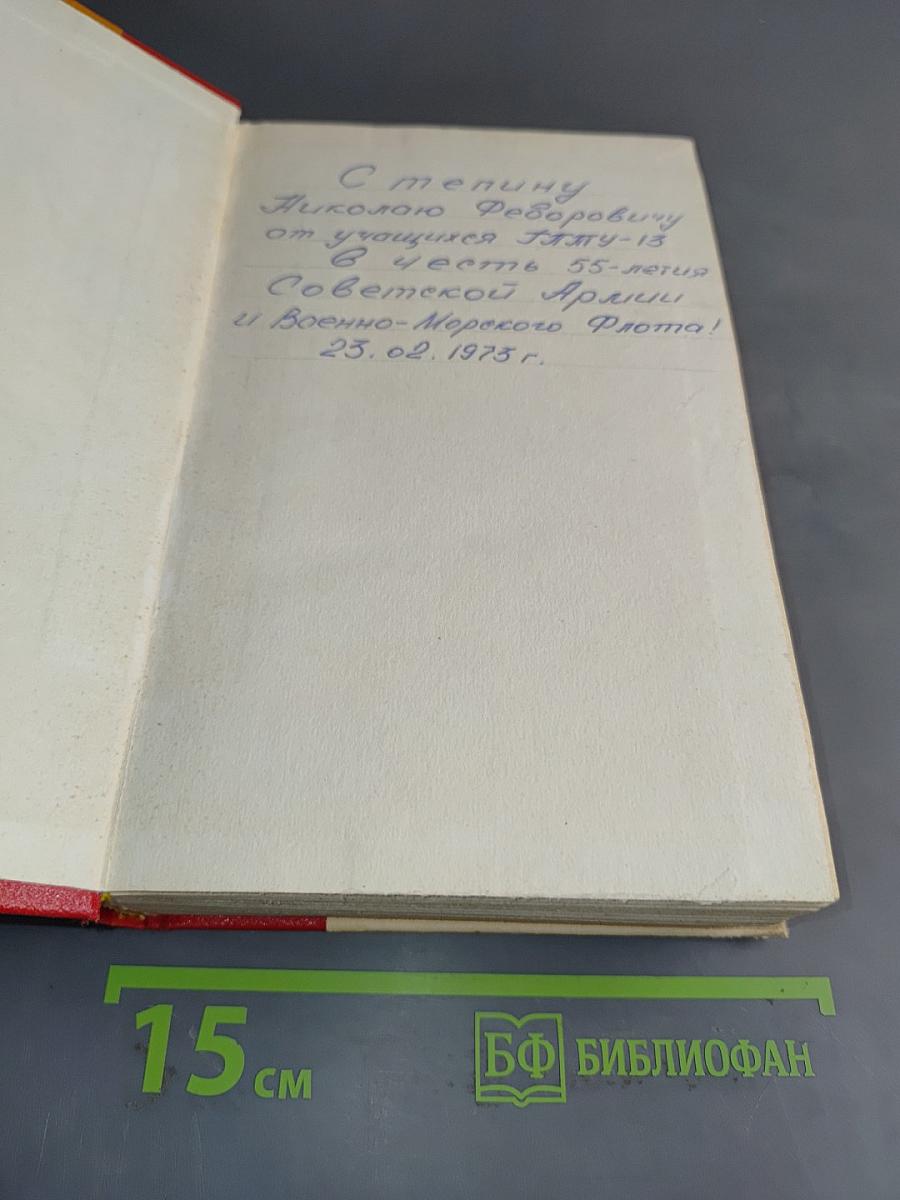 Степину
Николаю Федоровичу
от учащихся ГПТУ-13
В честь 55-летия
Советской Армии
и Военно-Морского Флота!
23.02.1973 г.
15 см
БФ БИБЛИОФАН